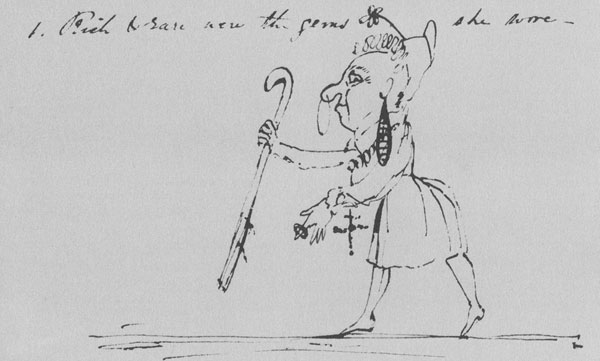 1. Rich & rare were the gems she wore —